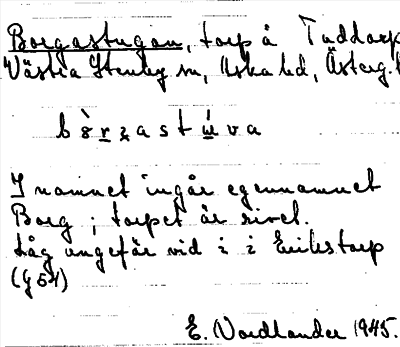 Borgastugan, torp å Taddorp
Västra Stenby sn, Aska hd, Österg.
bòrzastúva
I namnet ingår egennamnet
Borg; torpet är rivet.
Låg ungefär vid i i Erikstorp
(G 54)
E. Nordlander 1945.